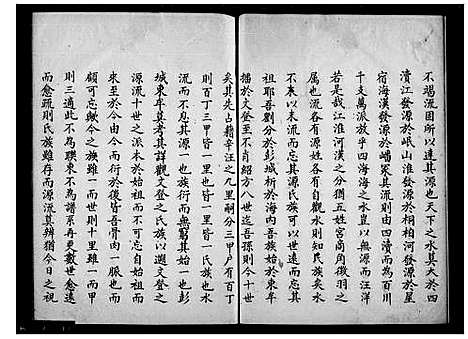 不竭流固所以達其源也天下之水莫大於四
瀆江發源於岷山淮發源於桐柏河發源於星
宿海漢發源於嶓冢其流則由四瀆而為百川
千支萬派放乎四海海之水豈以無源而汪洋
若是哉江淮河漢之分猶五姓宮商角徵羽之
属也流各有源姓各有自觀水則知民族矣水
不衰以末流而忘其源氏族可以世遠而忘其
祖耶吾劉分於彭城析於海内吾族始於東牟
播於文登至不肖紹八世迄吾孫則今十世
矣其先占籍辛汪之九里嗣分三甲户有百丁
則百丁三甲皆一里也皆一里皆一氏族也水
流而不見其源一也族衍而無窮其始一也彭
城東牟莫考其詳觀文登之氏族以遡文登之
源流十世之派本於始祖而不可忘則自始祖
來至於今由今而衍於後皆吾骨肉一脈也而
顧可忘歟今之族雖一而世則十里雖一而甲
則三過此不為聯束不為譜系再更數世愈遠
而愈疏則氏族雖存而源流莫辨猶今日之視